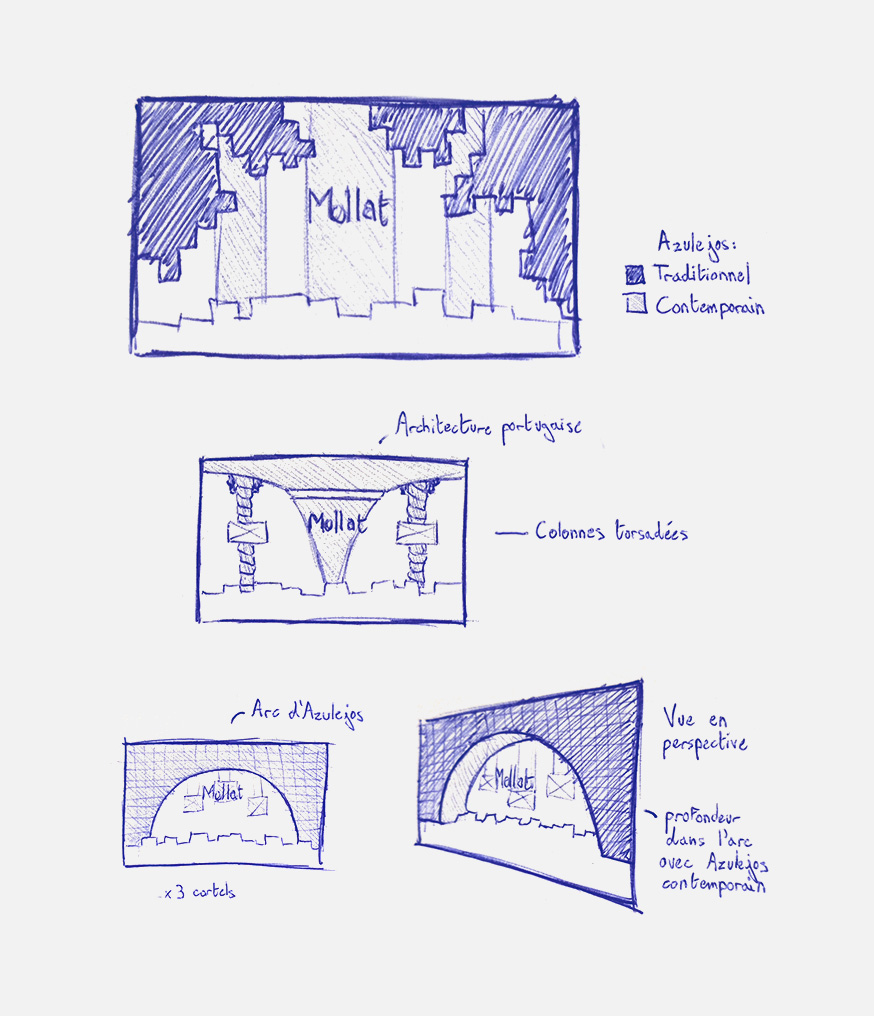 Mollat
Azulejos:
Traditionnel
Contemporain
Architecture portugaise
Mollat
Colonnes torsadées
Arc d'Azulejos
Mollat
x3 cartels
Vue en
perspective
Mollat
profondeur
dans l'arc
avec Azulejos
contemporain